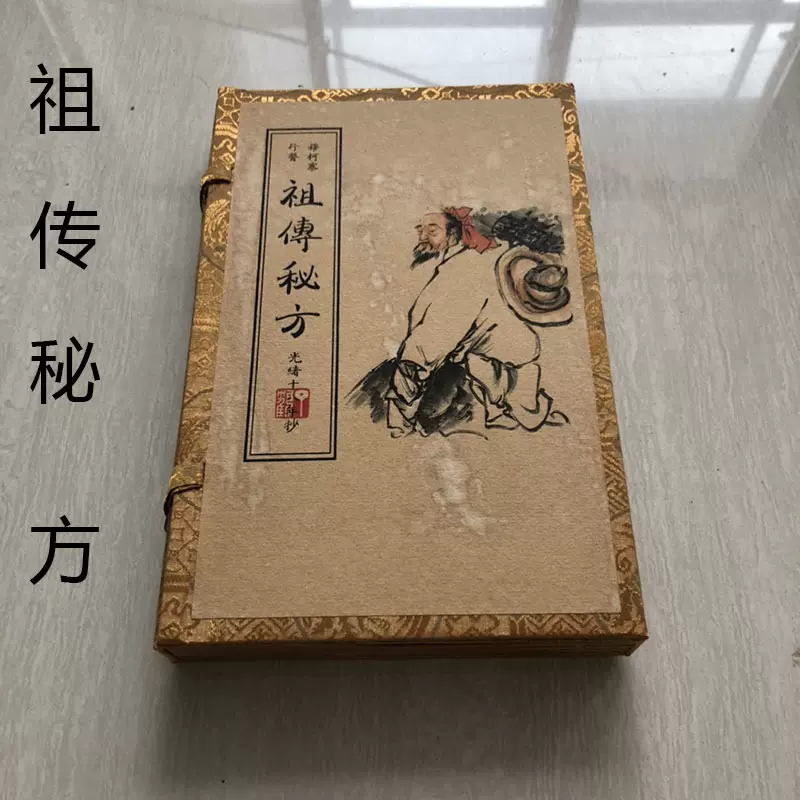 祖传秘方
行醫
祖傳秘方
光緒十
年抄